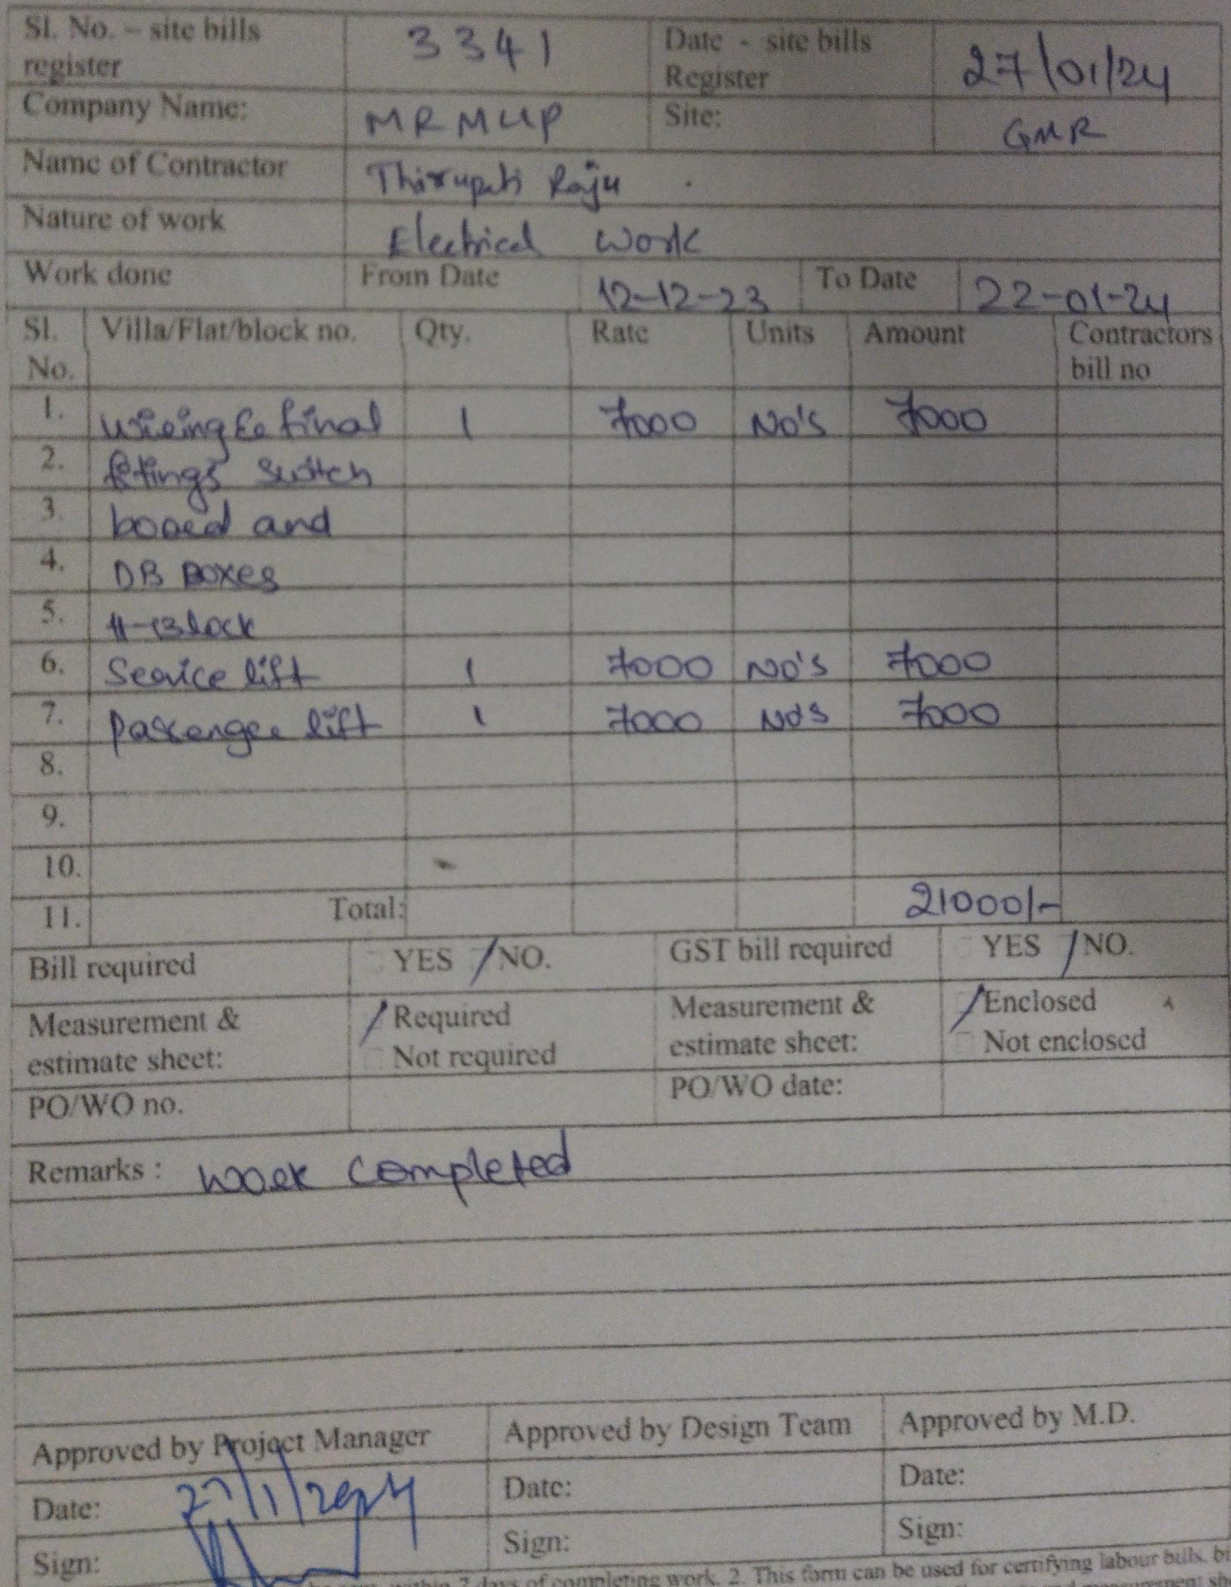 Sl. No. – site bills register 3341 Date - site bills Register 27/01/24
Company Name: MRMUP Site: GMR
Name of Contractor Thirupati Raju
Nature of work Electrical Work
Work done From Date 12-12-23 To Date 22-01-24
Sl. No. Villa/Flat/block no. Qty. Rate Units Amount Contractors bill no
1. wireing & final 1 7000 No's 7000
2. fitings switch
3. board and
4. DB Boxes
5. H-Block
6. Service lift 1 7000 No's 7000
7. passenger lift 1 7000 No's 7000
8.
9.
10.
11. Total: 21000/-
Bill required YES /NO. GST bill required YES /NO.
Measurement & estimate sheet: Required Not required Measurement & estimate sheet: Enclosed Not enclosed
PO/WO no. PO/WO date:
Remarks : work completed
Approved by Project Manager Approved by Design Team Approved by M.D.
Date: 27/1/2024 Date: Date:
Sign: Sign: Sign:
within 7 days of completing work. 2. This form can be used for certifying labour bills,